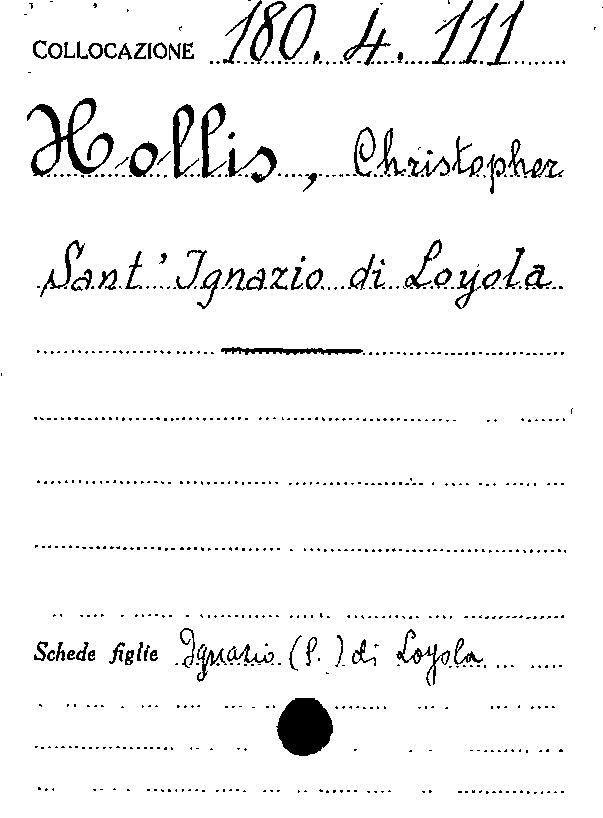 COLLOCAZIONE 180. 4. 111
Hollis, Christopher
Sant' Ignazio di Loyola
Schede figlie Ignazio (S.) di Loyola